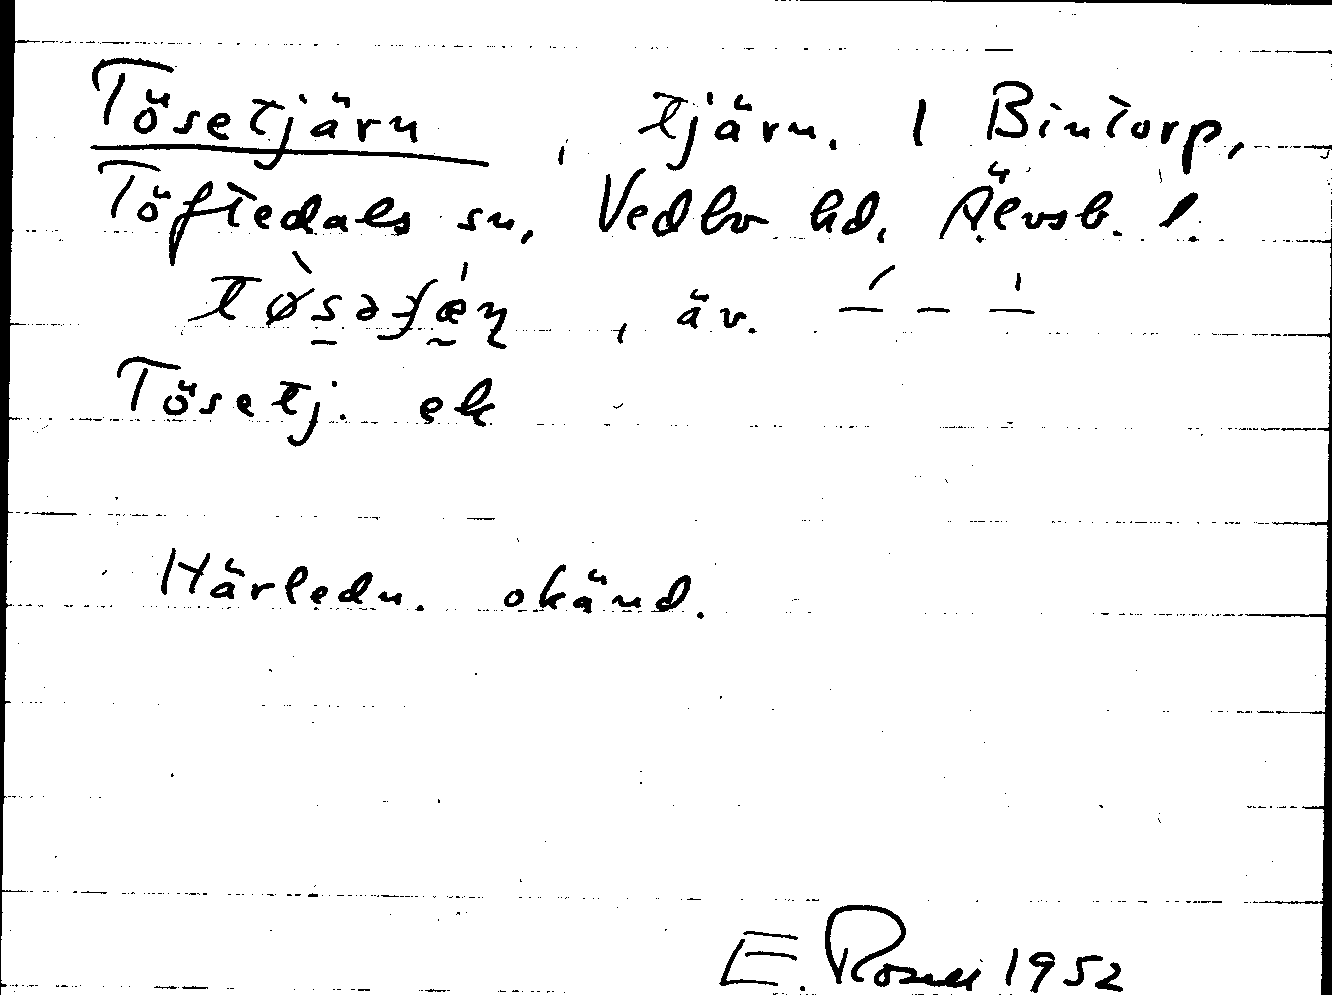 Tösetjärn, tjärn. 1 Bintorp,
Töftedals sn, Vedbo hd, Älvsb. l.
tø̀sə, äv. –́ – –̍
Tösetj. ek
Härledn. okänd.
E. Rosell 1952